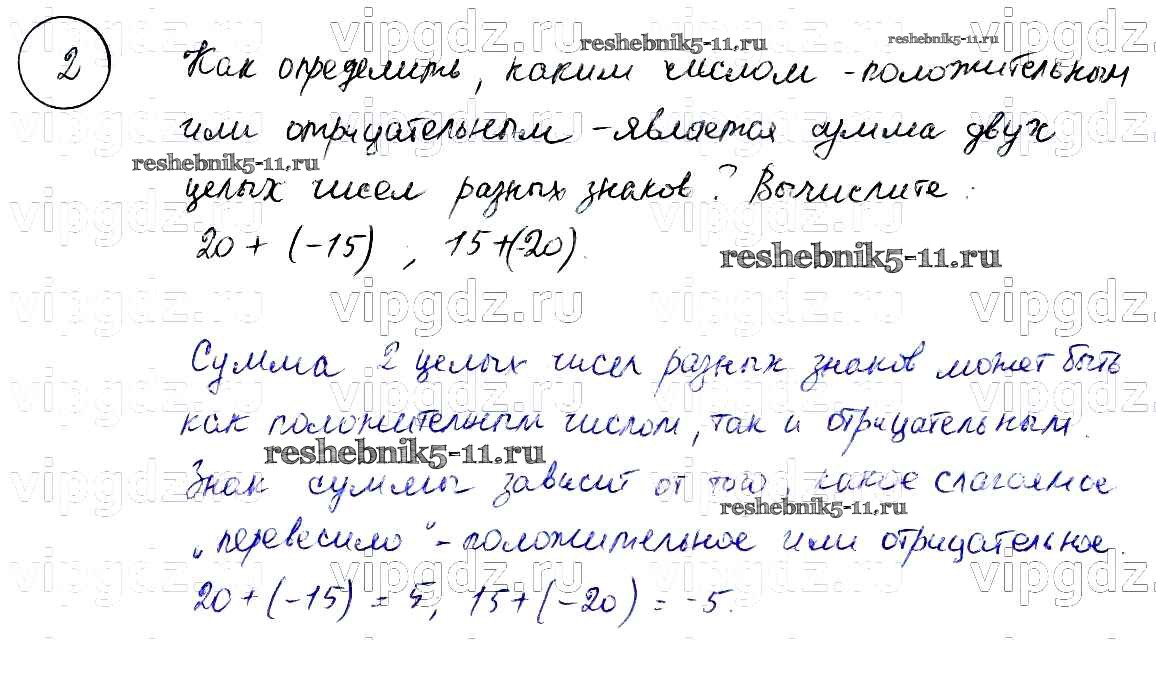 vipgdz.ru vipgdz.ru vipgdz.ru vipgdz.
reshebnik5-11.ru reshebnik5-11.ru
2 Как определить, каким числом - положительным
vipgdz.ru vipgdz.ru vipgdz.ru vipgdz.
или отрицательным - является сумма двух
reshebnik5-11.ru
целых чисел разных знаков? Вычислите:
vipgdz.ru vipgdz.ru vipgdz.ru vipgdz.
20 + (-15), 15+(-20).
reshebnik5-11.ru
vipgdz.ru vipgdz.ru vipgdz.ru vipgdz.
Сумма 2 целых чисел разных знаков может быть
vipgdz.ru vipgdz.ru vipgdz.ru vipgdz.
как положительным числом, так и отрицательным.
reshebnik5-11.ru
Знак суммы зависит от того, какое слагаемое
vipgdz.ru vipgdz.ru vipgdz.ru vipgdz.
reshebnik5-11.ru
„перевесило" - положительное или отрицательное.
vipgdz.ru vipgdz.ru vipgdz.ru vipgdz.
20+(-15) = 5, 15+(-20) = -5.